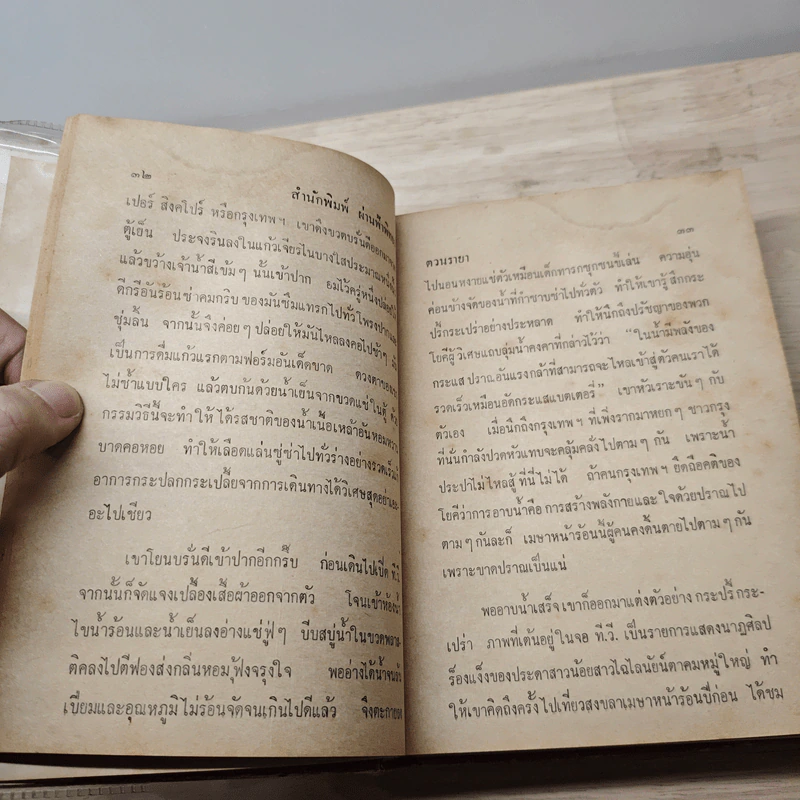 ๓๒
สำนักพิมพ์ ผ่านฟ้าพิทยา
เปอร์ สิงคโปร์ หรือกรุงเทพฯ เขาดึงขวดบรั่นดีออกมาจาก
ตู้เย็น ประจงรินลงในแก้วเจียรไนบางใสประมาณหนึ่ง
แล้วขว้างเจ้าน้ำสีเข้มๆ นั้นเข้าปาก อมไว้ครู่หนึ่งปล่อยให้
ดีกรีอันร้อนซ่าคมกริบ ของมันซึมแทรกไปทั่วโพรงปาก
ชุ่มลิ้น จากนั้นจึงค่อยๆ ปล่อยให้มันไหลลงคอไปช้าๆ
เป็นการดื่มแก้วแรกตามฟอร์มอันเด็ดขาด ดวงตาของ
ไม่ซ้ำแบบใคร แล้วตบก้นด้วยน้ำเย็นจากขวดแช่ในตู้
กรรมวิธีนี้จะทำให้ ได้รสชาติของน้ำเนื้อเหล้าอันหอมหวาน
บาดคอหอย ทำให้เลือดแล่นซู่ซ่าไปทั่วร่างอย่างรวดเร็วแก้
อาการกระปลกกระเปลี้ยจากการเดินทางได้วิเศษสุดอย่าและ
อะไปเชียว
เขาโยนบรั่นดีเข้าปากอีกกรึ๊บ ก่อนเดินไปเปิด ที.วี.
จากนั้นก็จัดแจงเปลื้องเสื้อผ้าออกจากตัว โจนเข้าห้องน้ำ
ไขน้ำร้อนและน้ำเย็นลงอ่างแช่ฟู่ๆ บีบสบู่น้ำในขวดพลาส-
ติคลงไปตีฟองส่งกลิ่นหอมฟุ้งจรุงใจ พออ่างได้น้ำจนล้น
เปี่ยมและอุณหภูมิไม่ร้อนจัดจนเกินไปดีแล้ว จึงตะกาย
ตวนรายา
๓๓
ไปนอนหงายแช่ตัวเหมือนเด็กทารกซุกซนขี้เล่น ความอุ่น
ค่อนข้างจัดของน้ำที่กำซาบซ่าไปทั่วตัว ทำให้เขารู้สึกกระ
ปรี้กระเปร่าอย่างประหลาด ทำให้นึกถึงปรัชญาของพวก
โยคีผู้วิเศษแถบลุ่มน้ำคงคาที่กล่าวไว้ว่า "ในน้ำมีพลังของ
กระแส ปราณอันแรงกล้าที่สามารถจะไหลเข้าสู่ตัวคนเราได้
รวดเร็วเหมือนอัดกระแสแบตเตอรี่" เขาหัวเราะขันๆ กับ
ตัวเอง เมื่อนึกถึงกรุงเทพฯ ที่เพิ่งจากมาหยกๆ ชาวกรุง
ที่นั่นกำลังปวดหัวแทบจะคลุ้มคลั่งไปตามๆ กัน เพราะน้ำ
ประปาไม่ไหลสู้ ที่นี่ไม่ได้ ถ้าคนกรุงเทพฯ ยึดถือคติของ
โยคีว่าการอาบน้ำคือการสร้างพลังกายและใจด้วยปราณไป
ตามๆกันละก็ เมษาหน้าร้อนนี้ผู้คนคงดิ้นตายไปตามๆกัน
เพราะขาดปราณเป็นแน่
พออาบน้ำเสร็จ เขาก็ออกมาแต่งตัวอย่าง กระปรี้ กระ-
เปร่า ภาพที่เต้นอยู่ในจอ ที.วี. เป็นรายการแสดงนาฏศิลป
ร้องแง็งของประดาสาวน้อยสาวไฉไลนัยน์ตาคมหมู่ใหญ่ ทำ
ให้เขาคิดถึงครั้ง ไปเที่ยวสงขลาเมษาหน้าร้อนปีก่อน ได้ชม